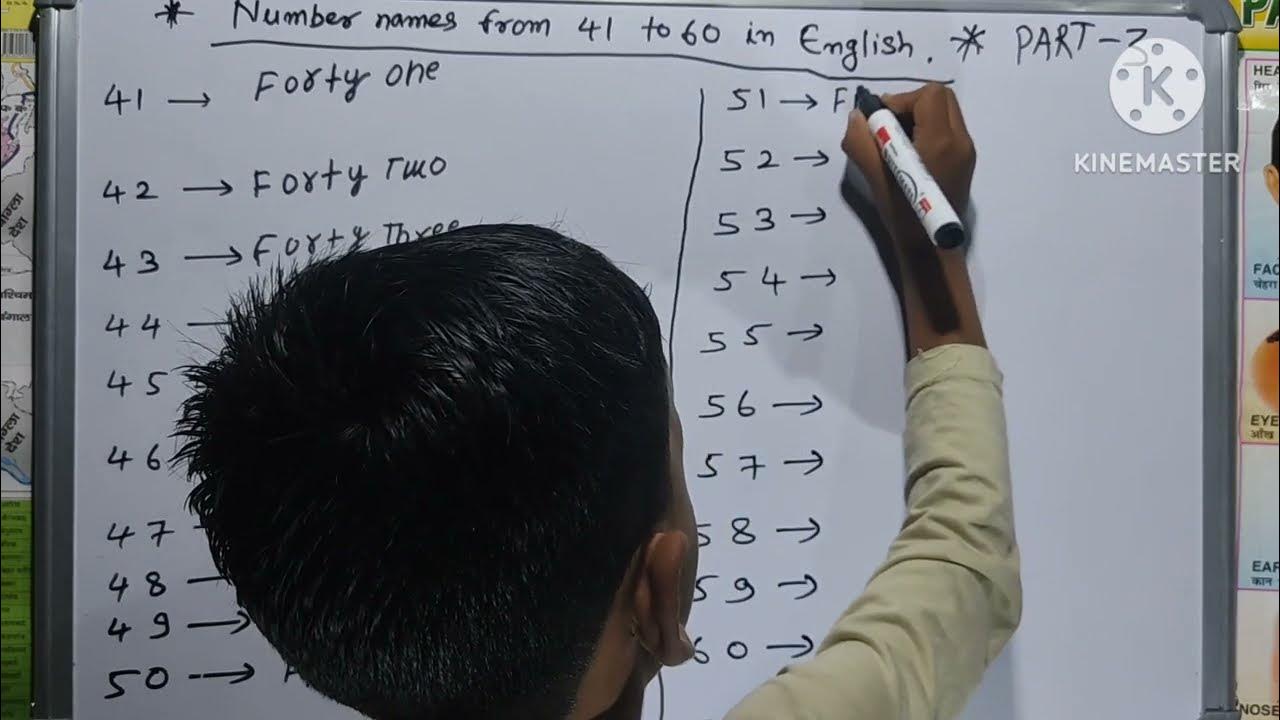 * Number names from 41 to 60 in English. * PART-3
41 → Forty one
42 → Forty Two
43 → Forty Three
44
45
46
47
48
49 →
50 →
51 → F
52 →
53 →
54 →
55 →
56 →
57 →
58 →
59 →
60 →
KINEMASTER
HEA
FAC
चेहरा
EYE
आँख
EAR
कान
NOSE